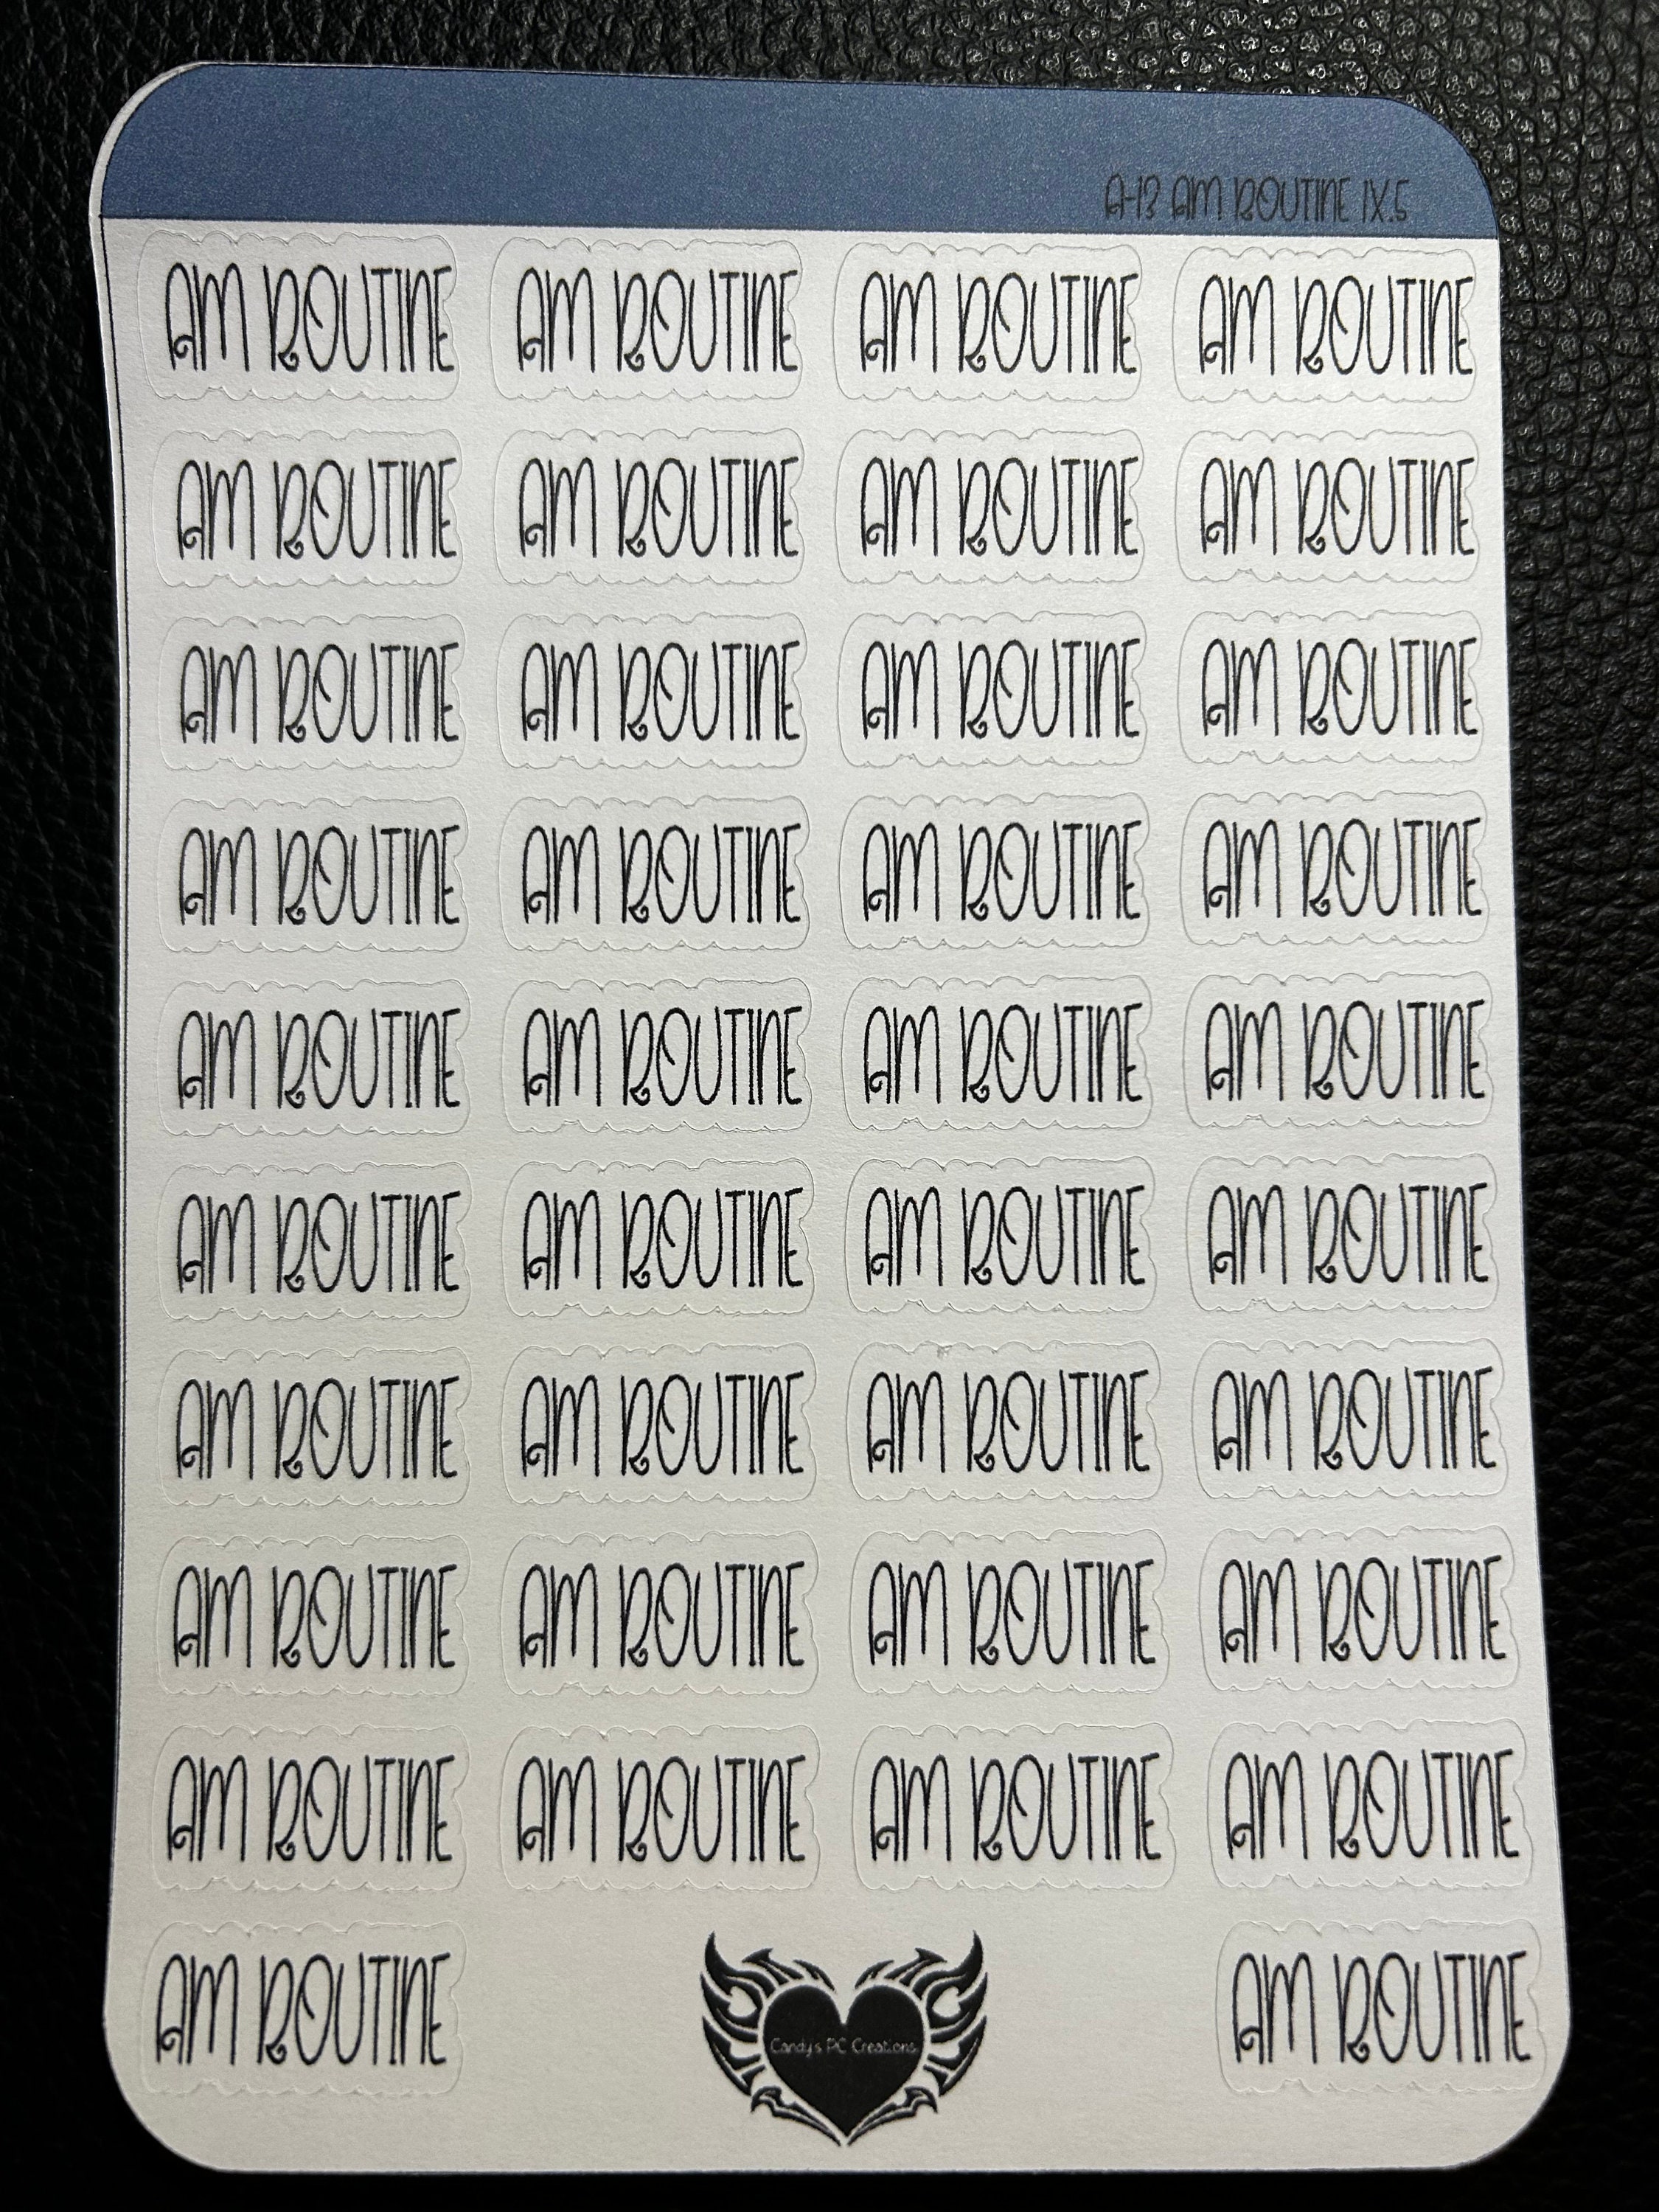 A-13 AM ROUTINE 1X.5
AM ROUTINE AM ROUTINE AM ROUTINE AM ROUTINE
AM ROUTINE AM ROUTINE AM ROUTINE AM ROUTINE
AM ROUTINE AM ROUTINE AM ROUTINE AM ROUTINE
AM ROUTINE AM ROUTINE AM ROUTINE AM ROUTINE
AM ROUTINE AM ROUTINE AM ROUTINE AM ROUTINE
AM ROUTINE AM ROUTINE AM ROUTINE AM ROUTINE
AM ROUTINE AM ROUTINE AM ROUTINE AM ROUTINE
AM ROUTINE AM ROUTINE AM ROUTINE AM ROUTINE
AM ROUTINE AM ROUTINE AM ROUTINE AM ROUTINE
AM ROUTINE Candy's PC Creations AM ROUTINE